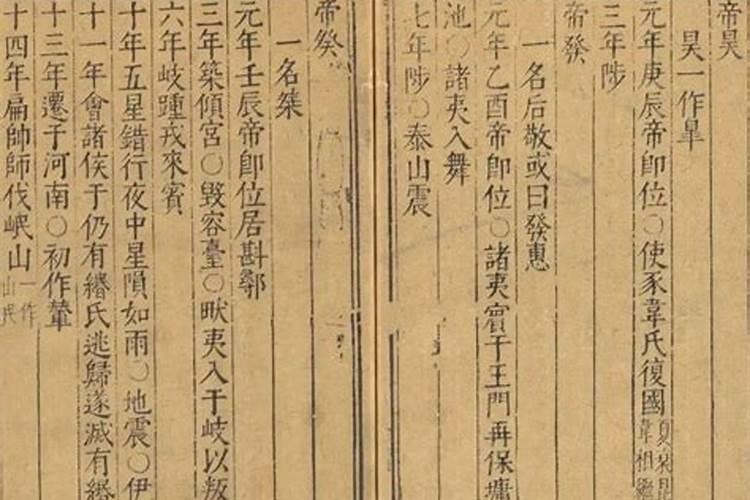 帝昊
昊一作皐
元年庚辰帝即位○使豕韋氏復國夏衰昆韋相繼
三年陟
帝發
一名后敬或曰發惠
元年乙酉帝即位○諸夷賓于王門再保墉
池○諸夷入舞
七年陟○泰山震
帝癸
一名桀
元年壬辰帝即位居斟鄩
三年築傾宮○毀容臺○畎夷入于岐以叛
六年岐踵戎來賓
十年五星錯行夜中星隕如雨○地震○伊
十一年會諸侯于仍有緡氏逃歸遂滅有緡
十三年遷于河南○初作輦
十四年扁帥師伐岷山一作山民